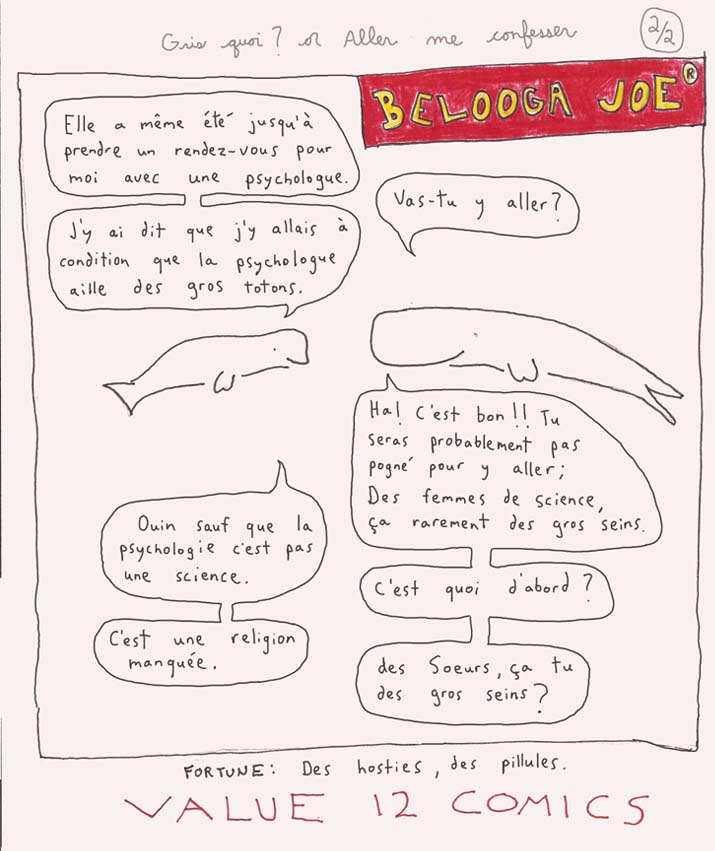 Gris quoi? or Aller me confesser
2/2
BELOOGA JOE®
Elle a même été jusqu'à
prendre un rendez-vous pour
moi avec une psychologue.
J'y ai dit que j'y allais à
condition que la psychologue
aille des gros totons.
Vas-tu y aller?
Ha! C'est bon!! Tu
seras probablement pas
pogné pour y aller;
Des femmes de science,
ça rarement des gros seins.
Ouin sauf que la
psychologie c'est pas
une science.
C'est une religion
manquée.
C'est quoi d'abord?
des Soeurs, ça tu
des gros seins?
FORTUNE: Des hosties, des pillules.
VALUE 12 COMICS